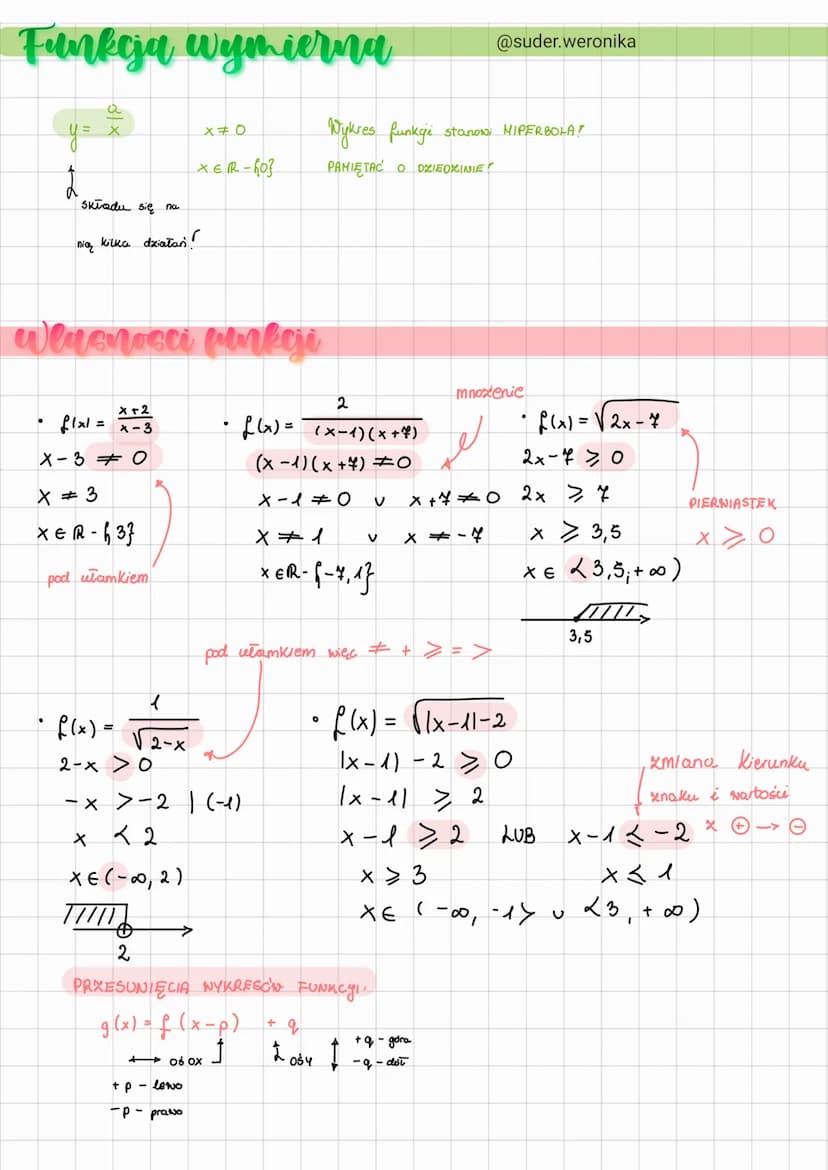 Funkcja wymierna
@suder.weronika
y = a/x
x ≠ 0
Wykres funkcji stanowi HIPERBOLA!
x ∈ ℝ - {0}
PAMIĘTAĆ O DZIEDZINIE!
składa się na
nią kilka działań!
Własności funkcji
• f(x) = x+2/x-3
x-3 ≠ 0
x ≠ 3
x ∈ ℝ - {3}
pod ułamkiem
mnożenie
• f(x) = 2/(x-1)(x+7)
(x-1)(x+7) ≠ 0
x-1 ≠ 0 ∨ x+7 ≠ 0
x ≠ 1 ∨ x ≠ -7
x ∈ ℝ - {-7,1}
• f(x) = √2x-7
2x-7 ⩾ 0
2x ⩾ 7
x ⩾ 3,5
x ∈ <3,5;+∞)
3,5
PIERWIASTEK
x ⩾ 0
pod ułamkiem więc ≠ + ⩾ = >
• f(x) = 1/√2-x
2-x > 0
-x > -2 | (-1)
x < 2
x ∈ (-∞, 2)
2
• f(x) = √|x-1|-2
|x-1) - 2 ⩾ 0
|x-1| ⩾ 2
x-1 ⩾ 2 LUB x-1 ⩽ -2
x ⩾ 3 x ⩽ 1
x ∈ (-∞, -1> ∪ <3, +∞)
zmiana kierunku
znaku i wartości
x ⊕ → ⊖
PRZESUNIĘCIA WYKRESÓW FUNKCJI.
g(x) = f(x-p) + q
↔ oś OX
OŚ Y ↕
+q - góra
-q - dół
+p - lewo
-p - prawo